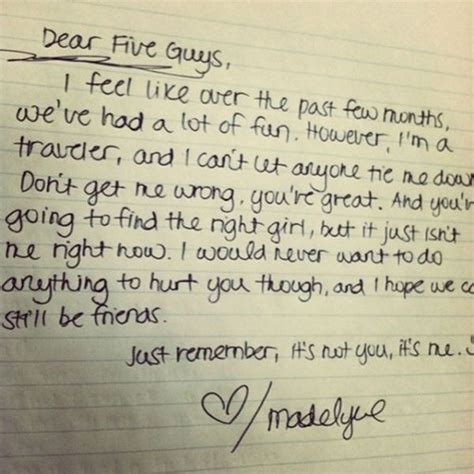 Dear Five Guys,
I feel like over the past few months,
we've had a lot of fun. However, I'm a
traveler, and I can't let anyone tie me down
Don't get me wrong, you're great. And you'r
going to find the right girl, but it just isn't
me right now. I would never want to do
anything to hurt you though, and I hope we ca
still be friends.
Just remember, it's not you, it's me.
♡/madelyne